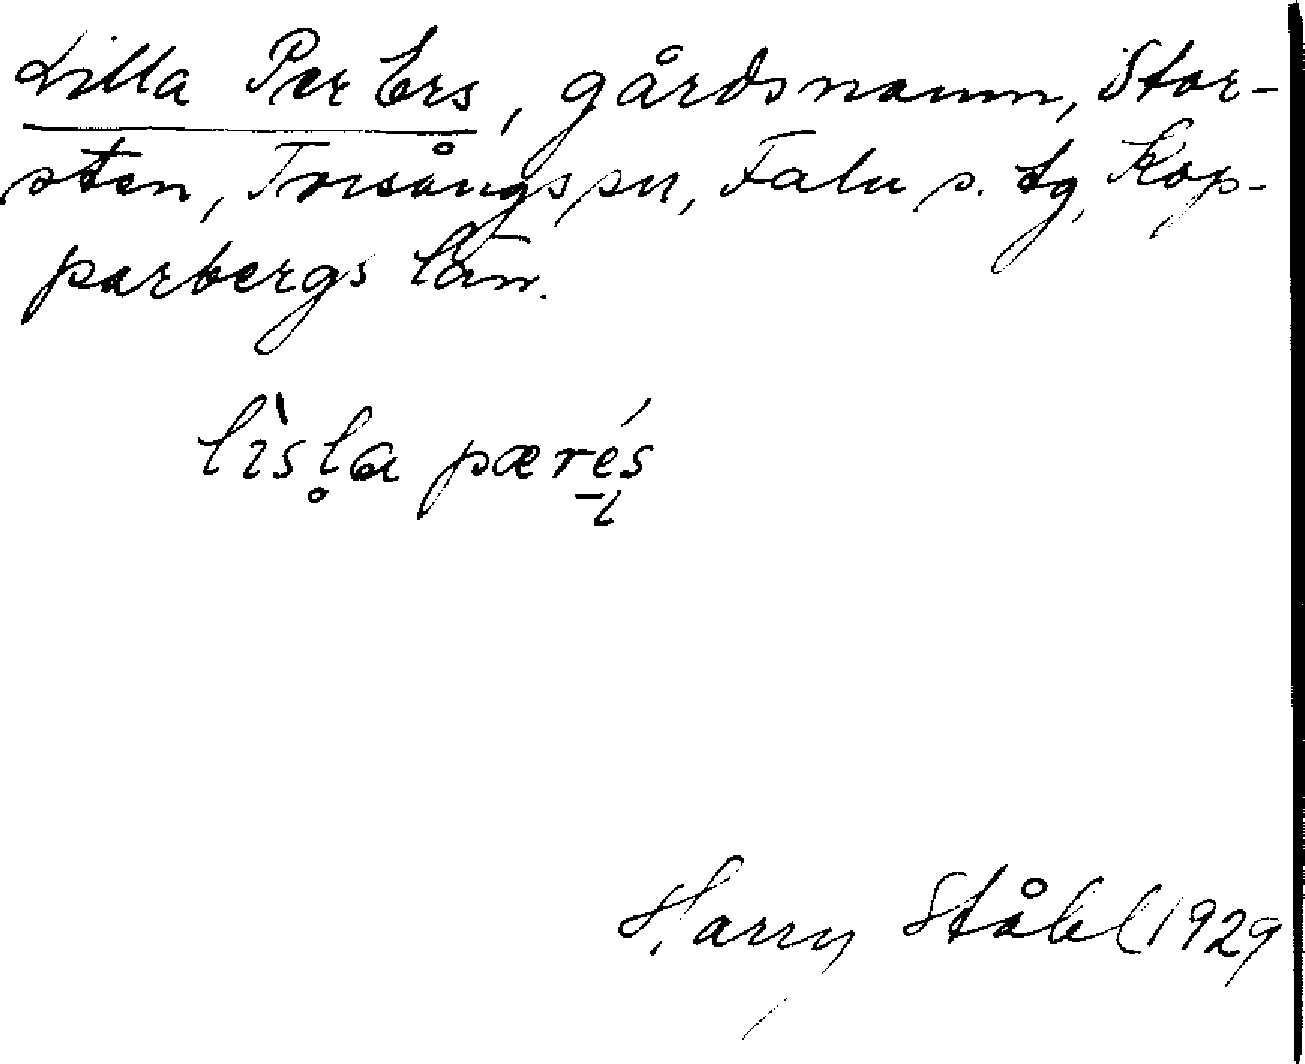 Lilla Per Ers, gårdsnamn, Stor-
sten, Torsångs sn, Falu s. tg, Kop-
parbergs län.
lìsl̥a pærés
Harry Ståhl 1929